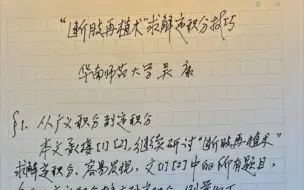 “断肢再植术”求解定积分技巧
华南师范大学吴康
§1. 从广义积分到定积分
本文承接[1][2],继续研讨“断肢再植术”
求解定积分。容易发现,文[1][2]中的所有题目,